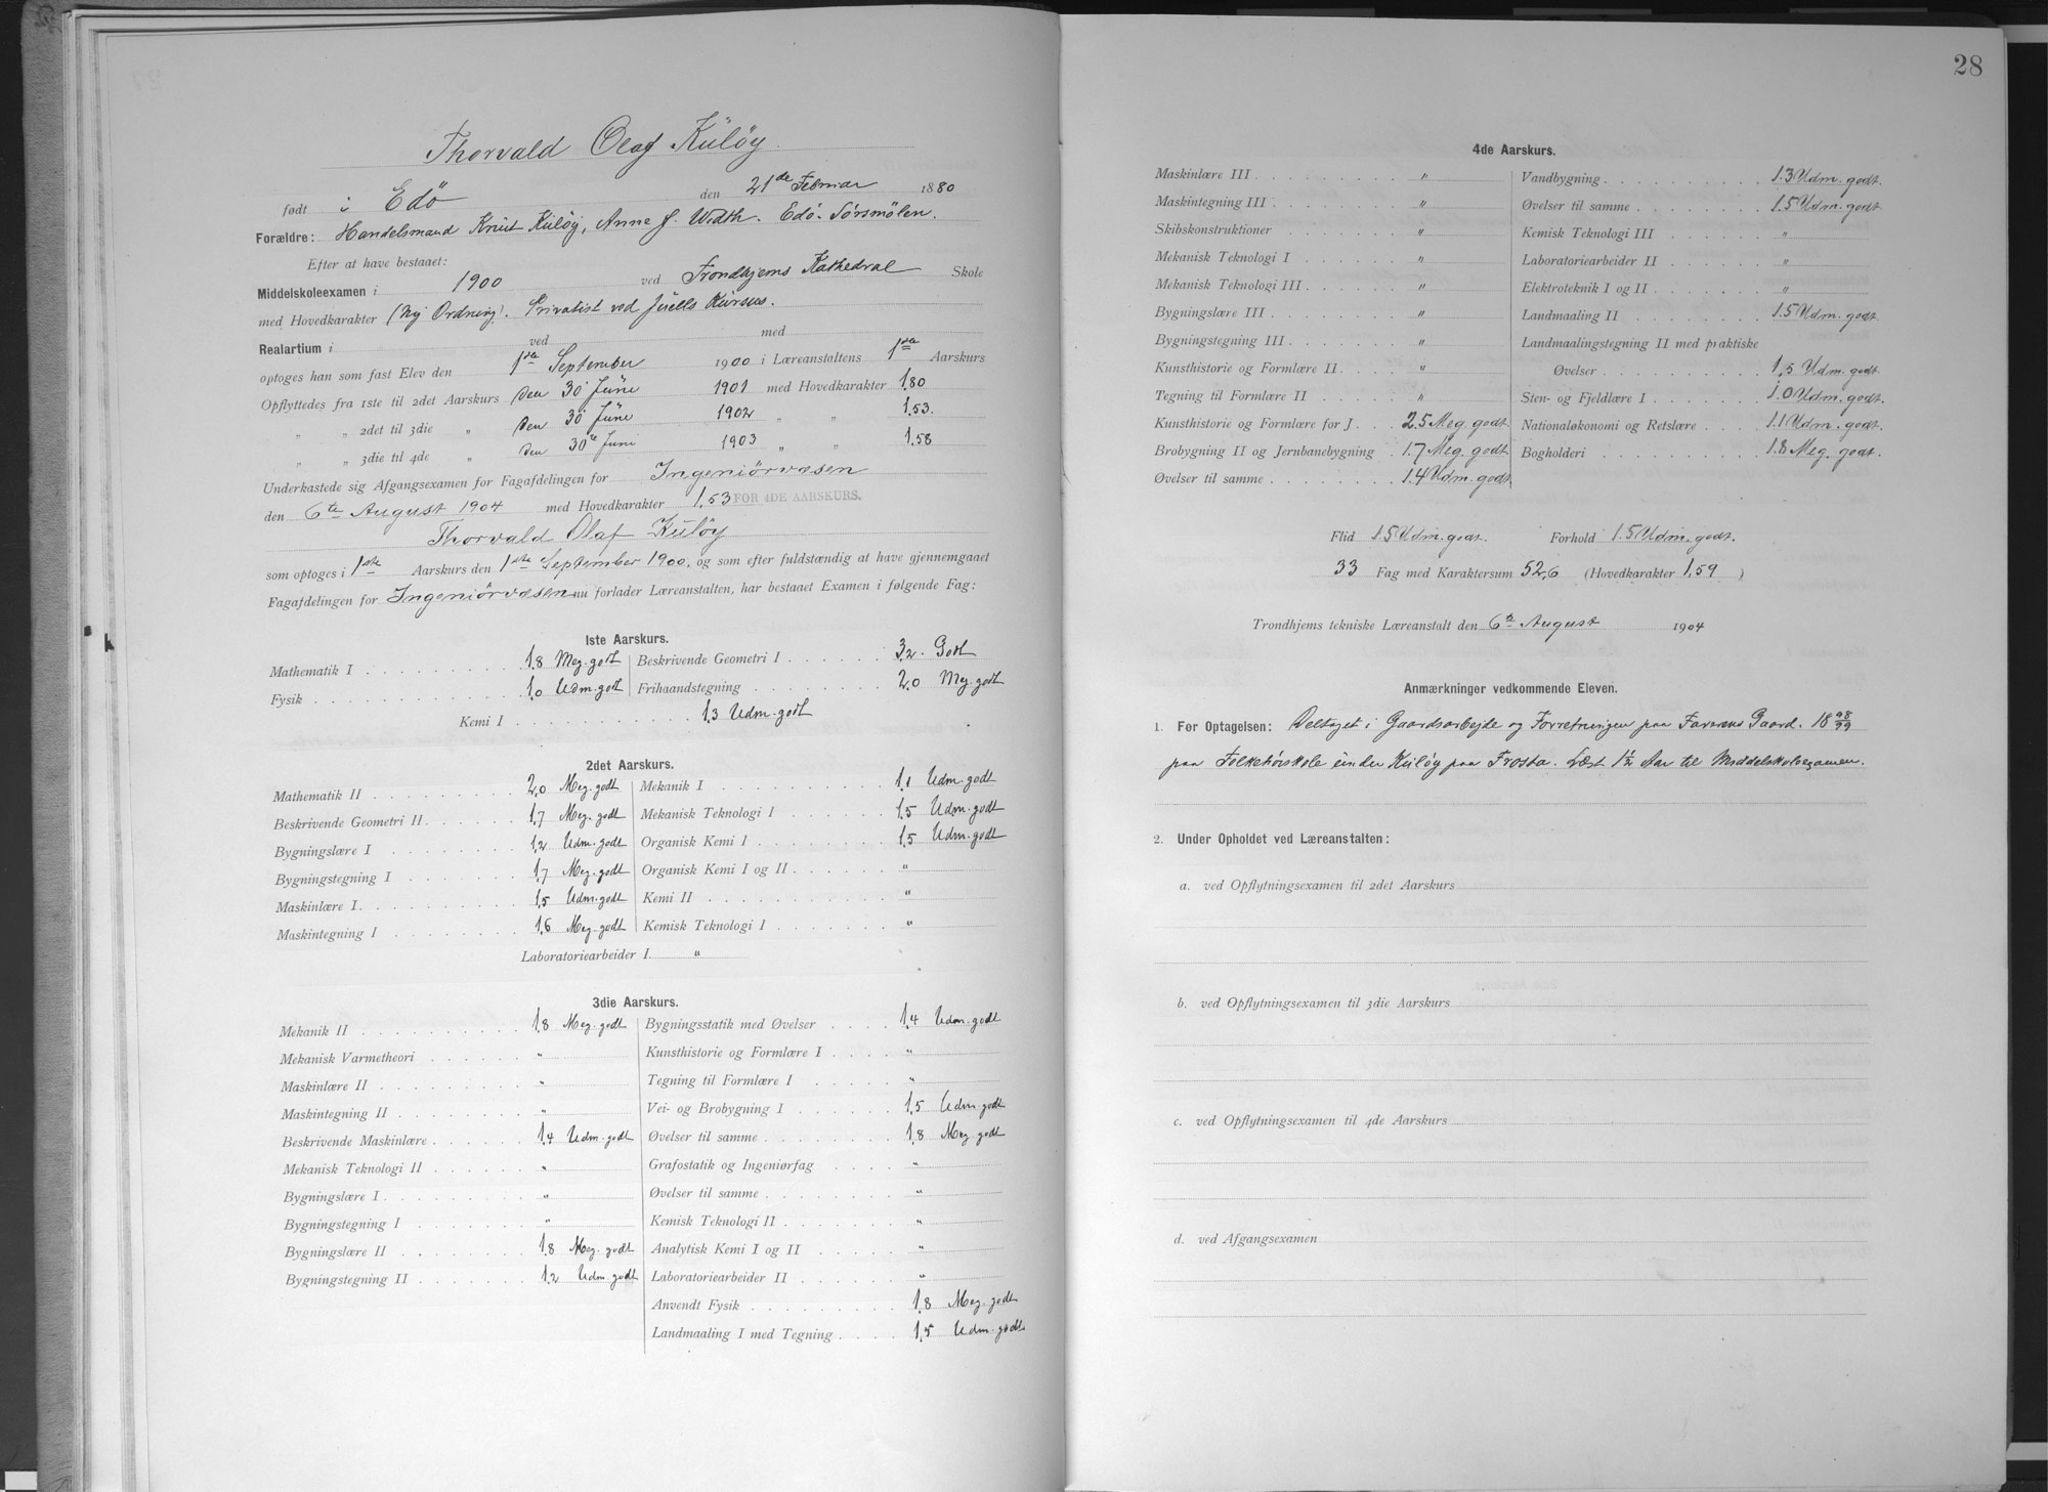 Thorvald Olaf Külöy
født i Edö den 21de Februar 1880
Forældre: Handelsmand Knut Külöy, Anne J. Width. Edö. Sörsmölen.
Efter at have bestaaet:
Middelskoleexamen i 1900 ved Trondhjems Kathedral Skole
med Hovedkarakter (Ny Ordning). Privatist ved Juells Kursus.
Realartium i ved med
optoges han som fast Elev den 1ste September 1900 i Læreanstaltens 1ste Aarskurs
Opflyttedes fra 1ste til 2det Aarskurs den 30 Jüne 1901 med Hovedkarakter 1.80
„ „ 2det til 3die „ den 30 Jüne 1902 „ „ 1.53.
„ „ 3die til 4de „ den 30te Juni 1903 „ „ 1.58
Underkastede sig Afgangsexamen for Fagafdelingen for Ingeniörvæsen
den 6te August 1904 med Hovedkarakter 1.53 FOR 4DE AARSKURS.
Thorvald Olaf Külöy
som optoges i 1ste Aarskurs den 1ste September 1900, og som efter fuldstændig at have gjennemgaaet
Fagafdelingen for Ingeniörvæsen nu forlader Læreanstalten, har bestaaet Examen i følgende Fag:
1ste Aarskurs.
Mathematik I 1.8 Meg. godt Beskrivende Geometri I 3.2. Godt
Fysik 1.0 Udm. godt Frihaandstegning 2.0 Meg. godt
Kemi I 1.3 Udm. godt
2det Aarskurs.
Mathematik II 2.0 Meg. godt Mekanik I 1.1 Udm. godt
Beskrivende Geometri II 1.7 Meg. godt Mekanisk Teknologi I 1.5 Udm. godt
Bygningslære I 1.2 Udm. godt Organisk Kemi I 1.5 Udm. godt
Bygningstegning I 1.7 Meg. godt Organisk Kemi I og II "
Maskinlære I 1.5 Udm. godt Kemi II "
Maskintegning I 1.6 Meg. godt Kemisk Teknologi I "
Laboratoriearbeider I "
3die Aarskurs.
Mekanik II 1.8 Meg. godt Bygningsstatik med Øvelser 1.4 Udm. godt
Mekanisk Varmetheori " Kunsthistorie og Formlære I "
Maskinlære II " Tegning til Formlære I "
Maskintegning II " Vei- og Brobygning I 1.5 Udm. godt
Beskrivende Maskinlære 1.4 Udm. godt Øvelser til samme 1.8 Meg. godt
Mekanisk Teknologi II " Grafostatik og Ingeniørfag "
Bygningslære I " Øvelser til samme "
Bygningstegning I " Kemisk Teknologi II "
Bygningslære II 1.8 Meg. godt Analytisk Kemi I og II "
Bygningstegning II 1.2 Udm. godt Laboratoriearbeider II "
Anvendt Fysik 1.8 Meg. godt
Landmaaling I med Tegning 1.5 Udm. godt
28
4de Aarskurs.
Maskinlære III " Vandbygning 1.3 Udm. godt.
Maskintegning III " Øvelser til samme 1.5 Udm. godt
Skibskonstruktioner " Kemisk Teknologi III "
Mekanisk Teknologi I " Laboratoriearbeider II "
Mekanisk Teknologi III " Elektroteknik I og II "
Bygningslære III " Landmaaling II 1.5 Udm. godt
Bygningstegning III " Landmaalingstegning II med praktiske
Kunsthistorie og Formlære II " Øvelser 1.5 Udm. godt
Tegning til Formlære II " Sten- og Fjeldlære I 1.0 Udm. godt.
Kunsthistorie og Formlære for J. 2.5 Meg. godt. Nationaløkonomi og Retslære 1.1 Udm. godt.
Brobygning II og Jernbanebygning 1.7 Meg. godt Bogholderi 1.8 Meg. godt.
Øvelser til samme 1.4 Udm. godt.
Flid 1.5 Udm. godt. Forhold 1.5 Udm. godt.
33 Fag med Karaktersum 52,6 (Hovedkarakter 1,59 )
Trondhjems tekniske Læreanstalt den 6te August 1904
Anmærkninger vedkommende Eleven.
1. Før Optagelsen: Deltaget i Gaardsarbejde og Forretningen paa Faderens Gaard. 18 98/99
paa Folkehöiskole under Külöy paa Frosta. Læst 1½ Aar til Middelskolexamen.
2. Under Opholdet ved Læreanstalten:
a. ved Opflytningsexamen til 2det Aarskurs
b. ved Opflytningsexamen til 3die Aarskurs
c. ved Opflytningsexamen til 4de Aarskurs
d. ved Afgangsexamen